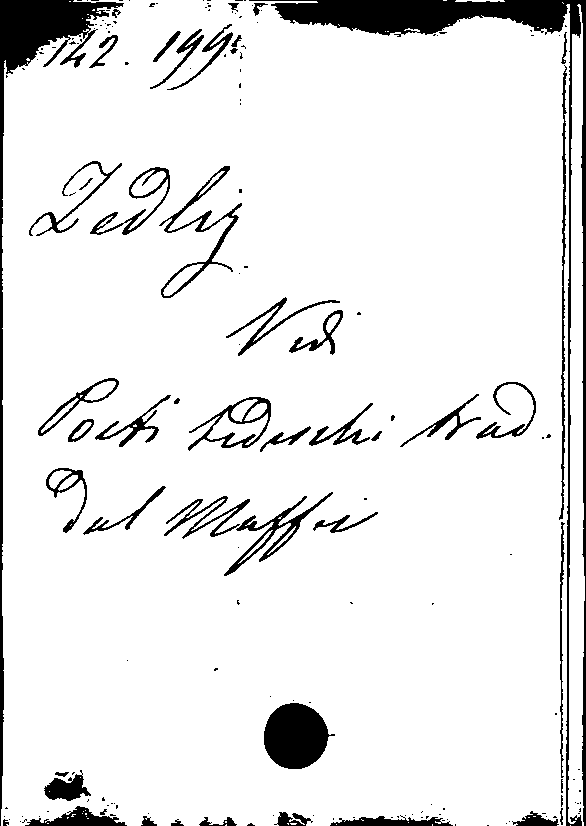 142. 199.
Zedliz
Vedi
Poeti tedeschi trad.
dal Maffei